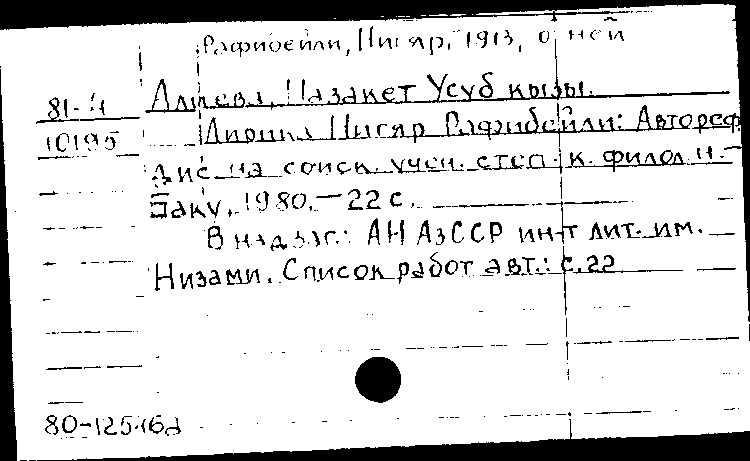 Рафибейли, Нигяр, 1913, о ней
81-4
10195
Алиева, Назакет Усуб кызы.
Лирика Нигяр Рафибейли: Автореф.
дис. на соиск. учен. степ. к. филол. н. –
Баку, 1980. – 22 с.
В надзаг.: АН АзССР ин-т лит. им.
Низами. Список работ авт.: с. 22
80-12516а